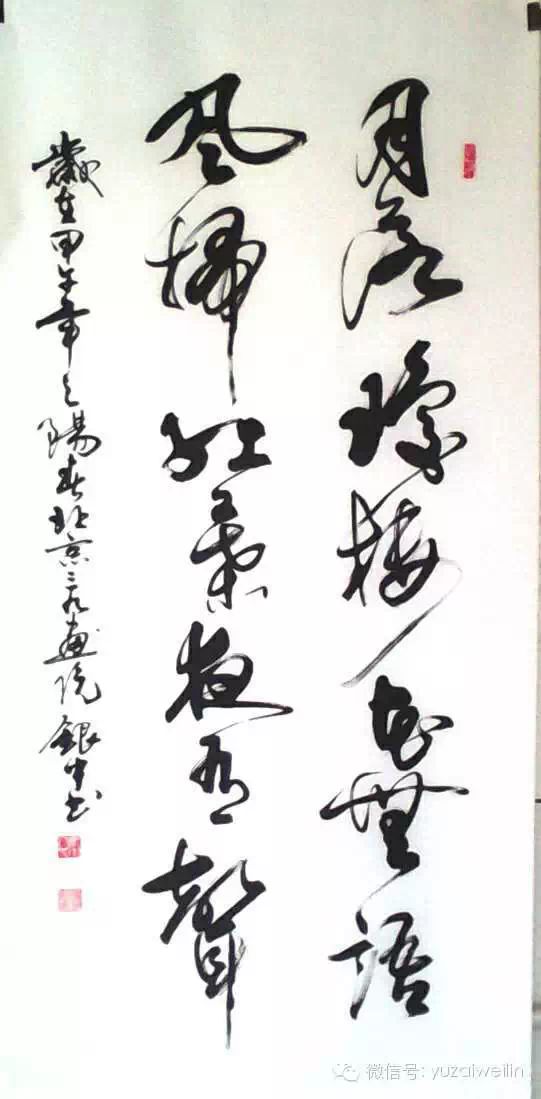 月落瓊樓花無語
風掃紅葉夜有聲
歲在甲午年之陽春北京三元畫院銀中書
微信号: yuzaiweilin